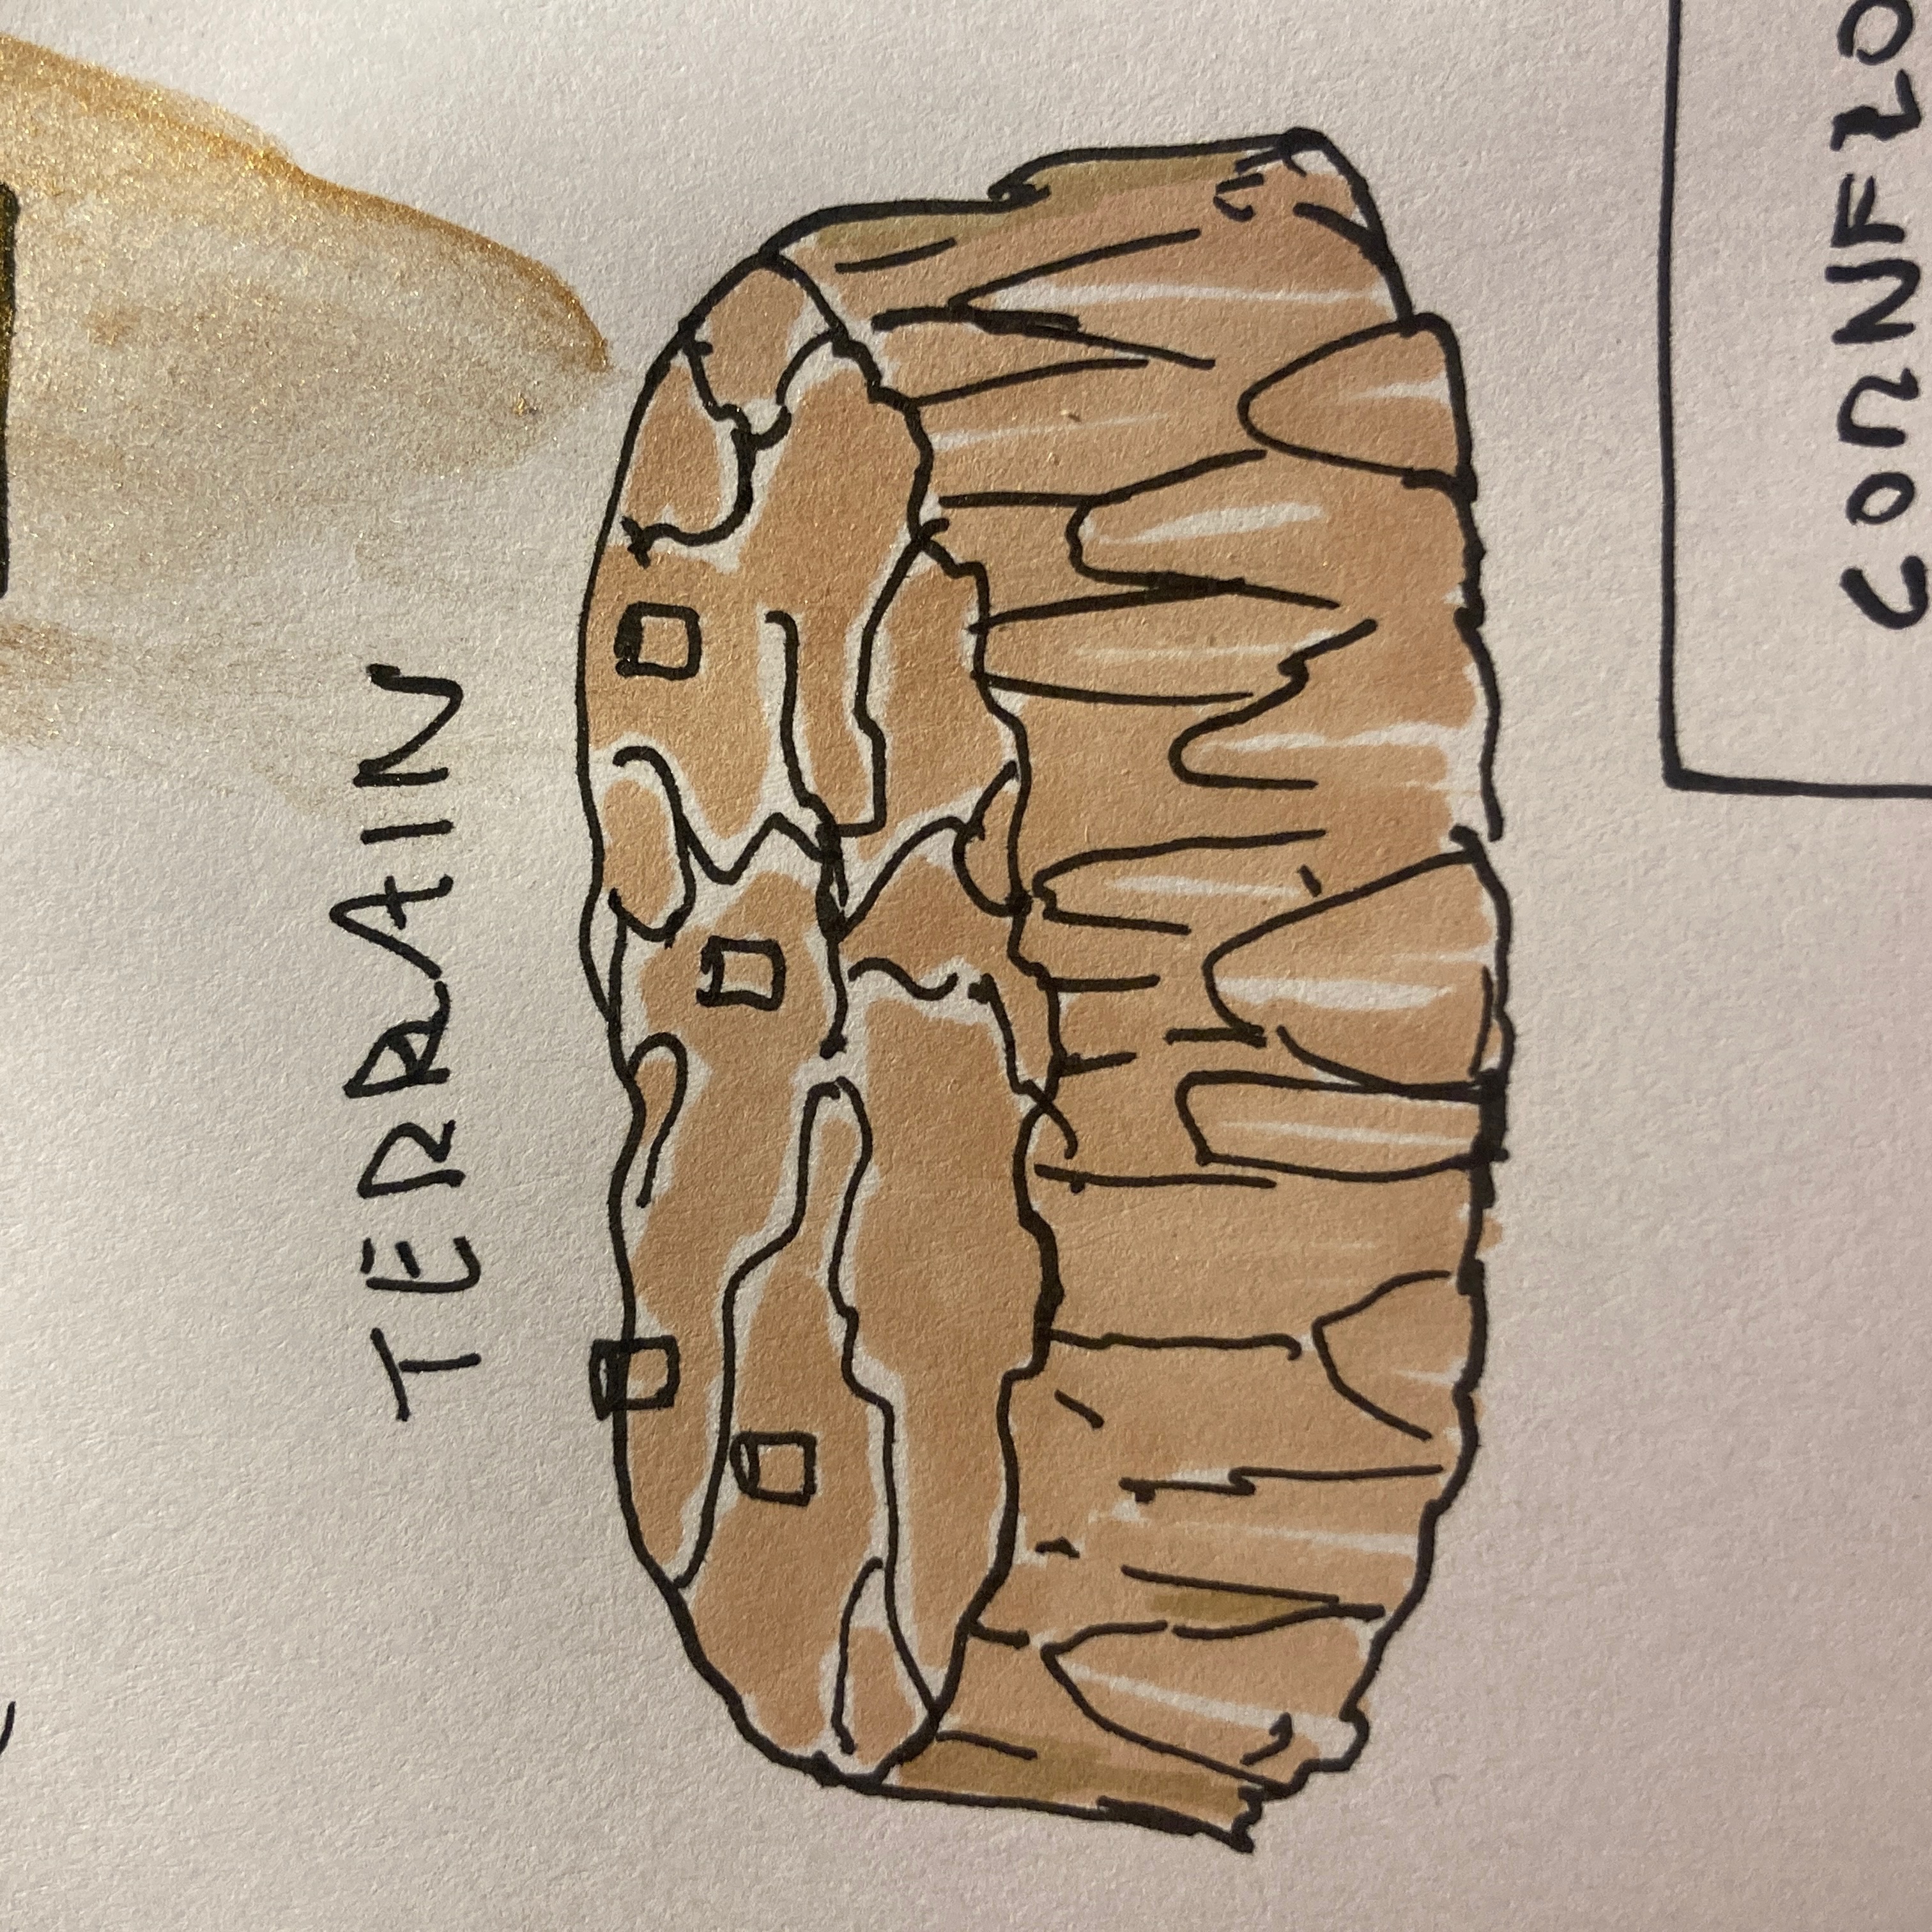 TERRAIN
CORNFLO